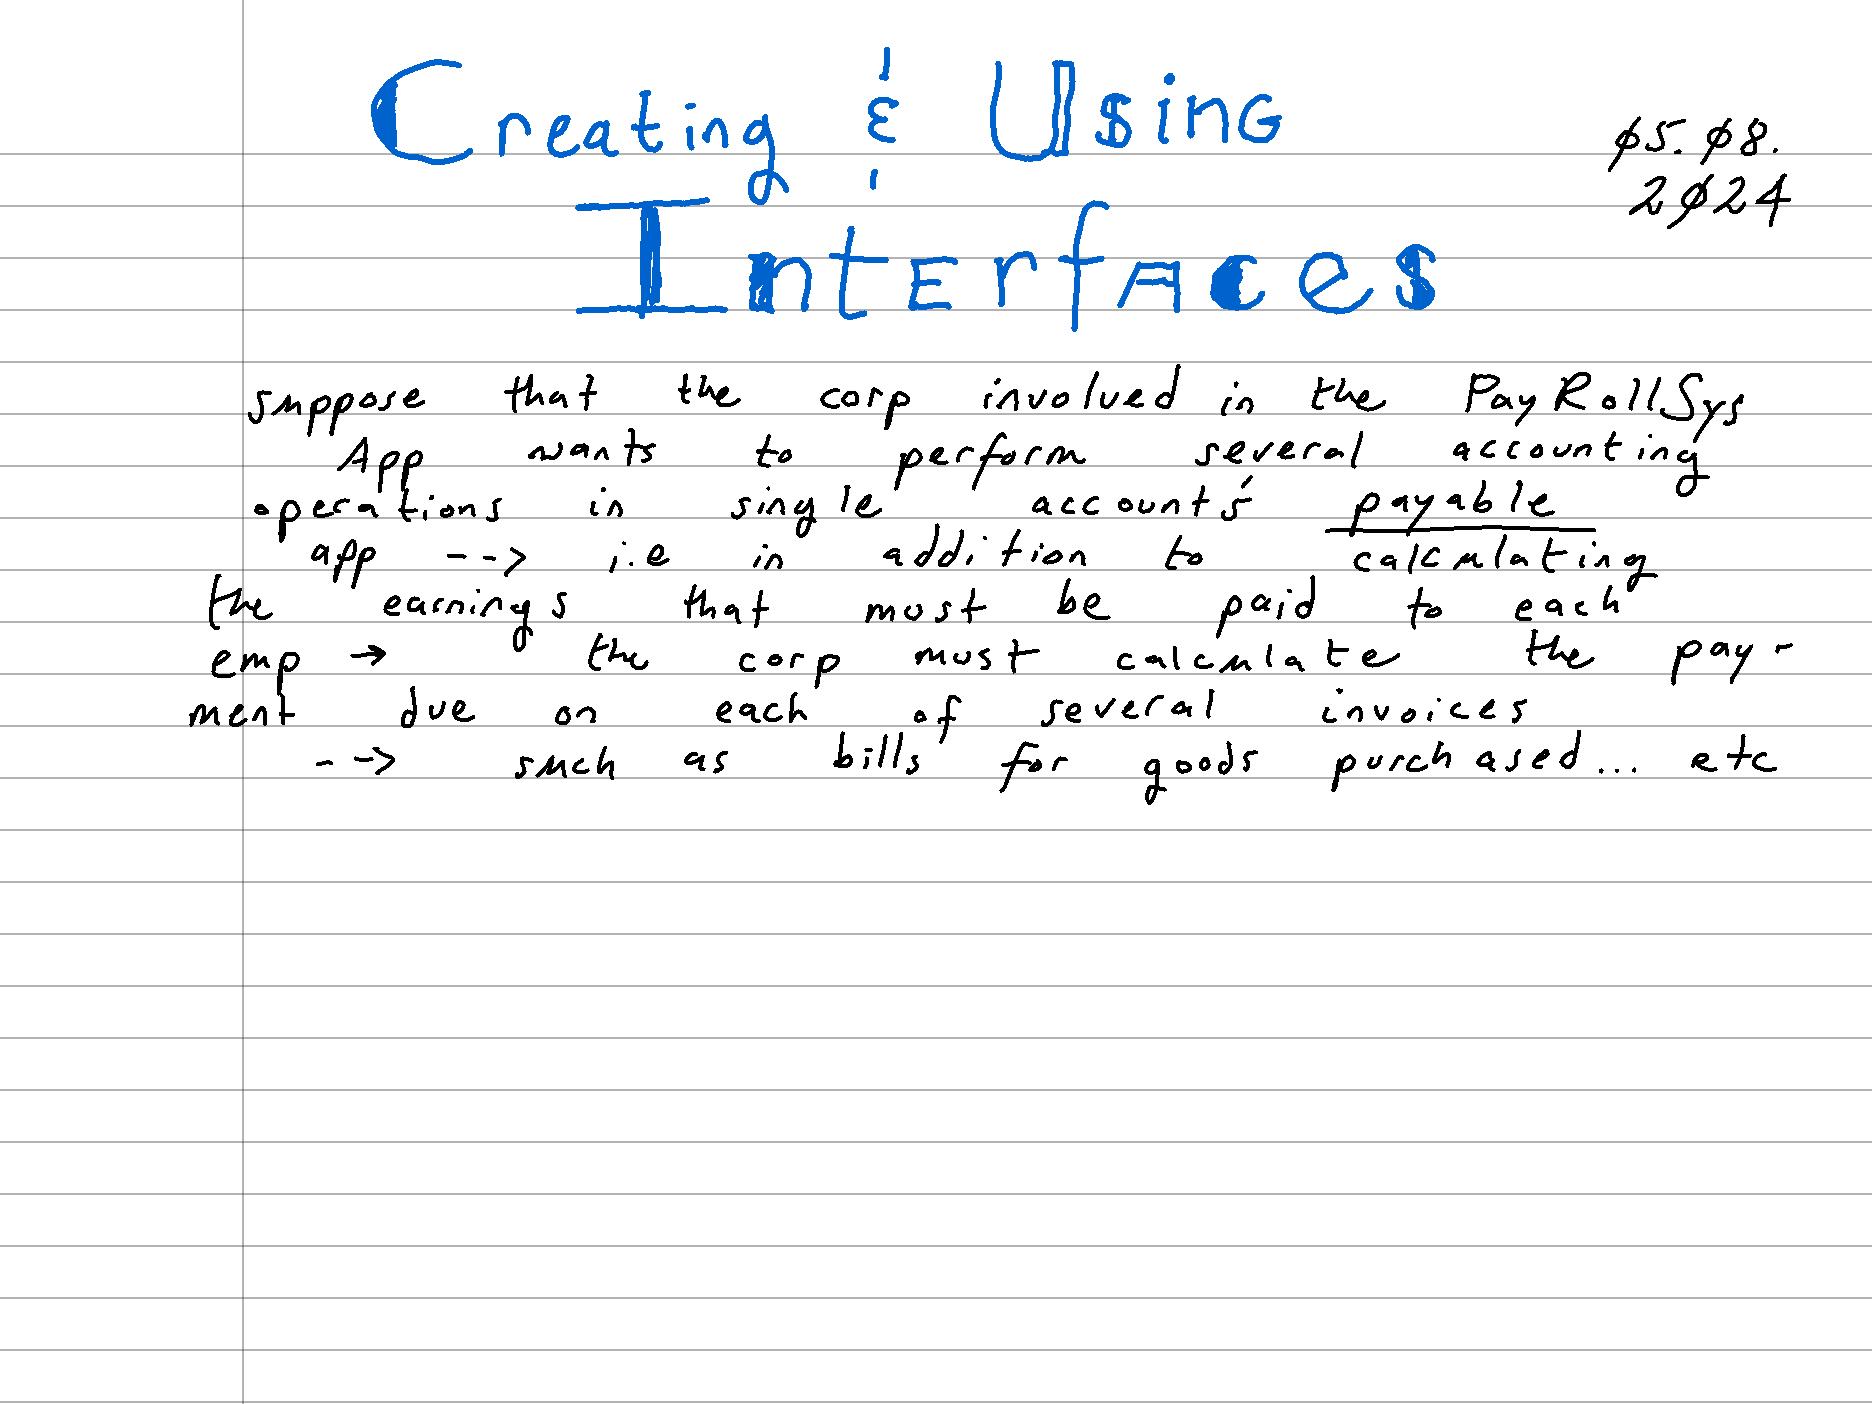 Creating & Using
Interfaces
05.08.
2024
suppose that the corp involved in the PayRollSys
App wants to perform several accounting
operations in single account's payable
app --> i.e in addition to calculating
the earnings that must be paid to each
emp → the corp must calculate the pay-
ment due on each of several invoices
--> such as bills for goods purchased... etc